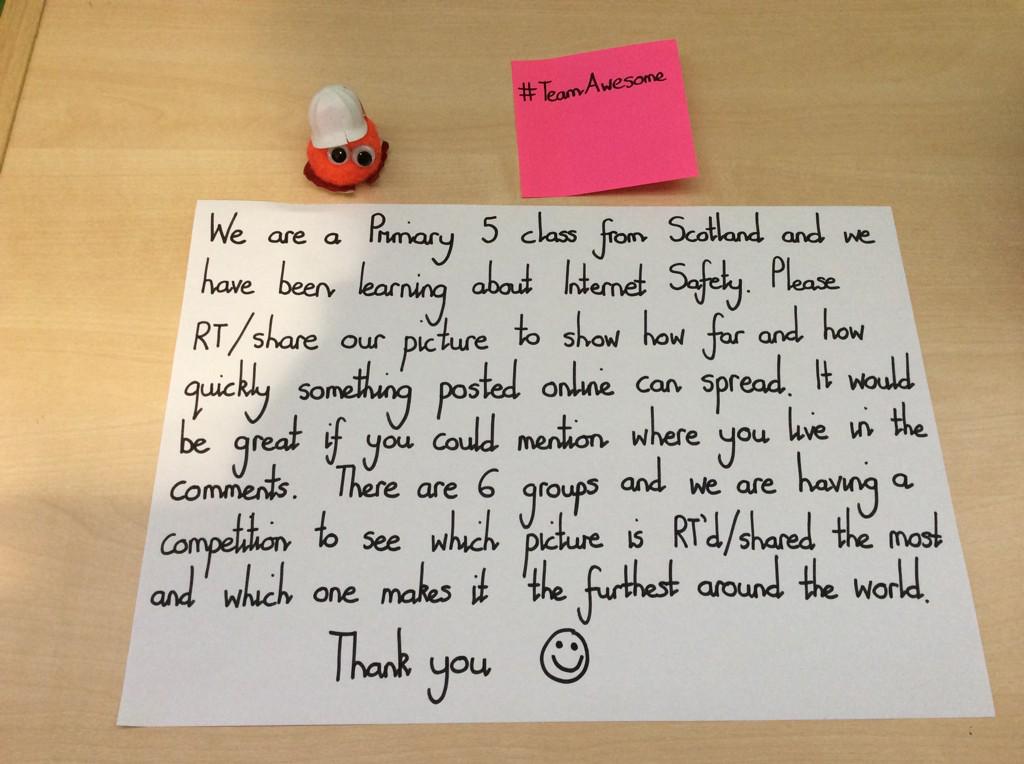 #TeamAwesome
We are a Primary 5 class from Scotland and we
have been learning about Internet Safety. Please
RT/share our picture to show how far and how
quickly something posted online can spread. It would
be great if you could mention where you live in the
comments. There are 6 groups and we are having a
competition to see which picture is RT'd/shared the most
and which one makes it the furthest around the world.
Thank you